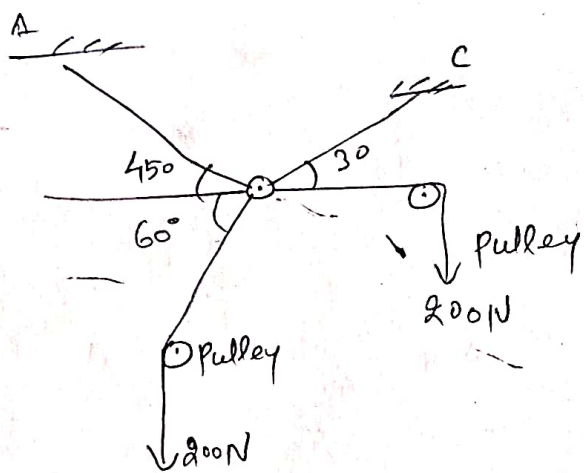 A
C
450
30
60°
Pulley
200N
Pulley
200N